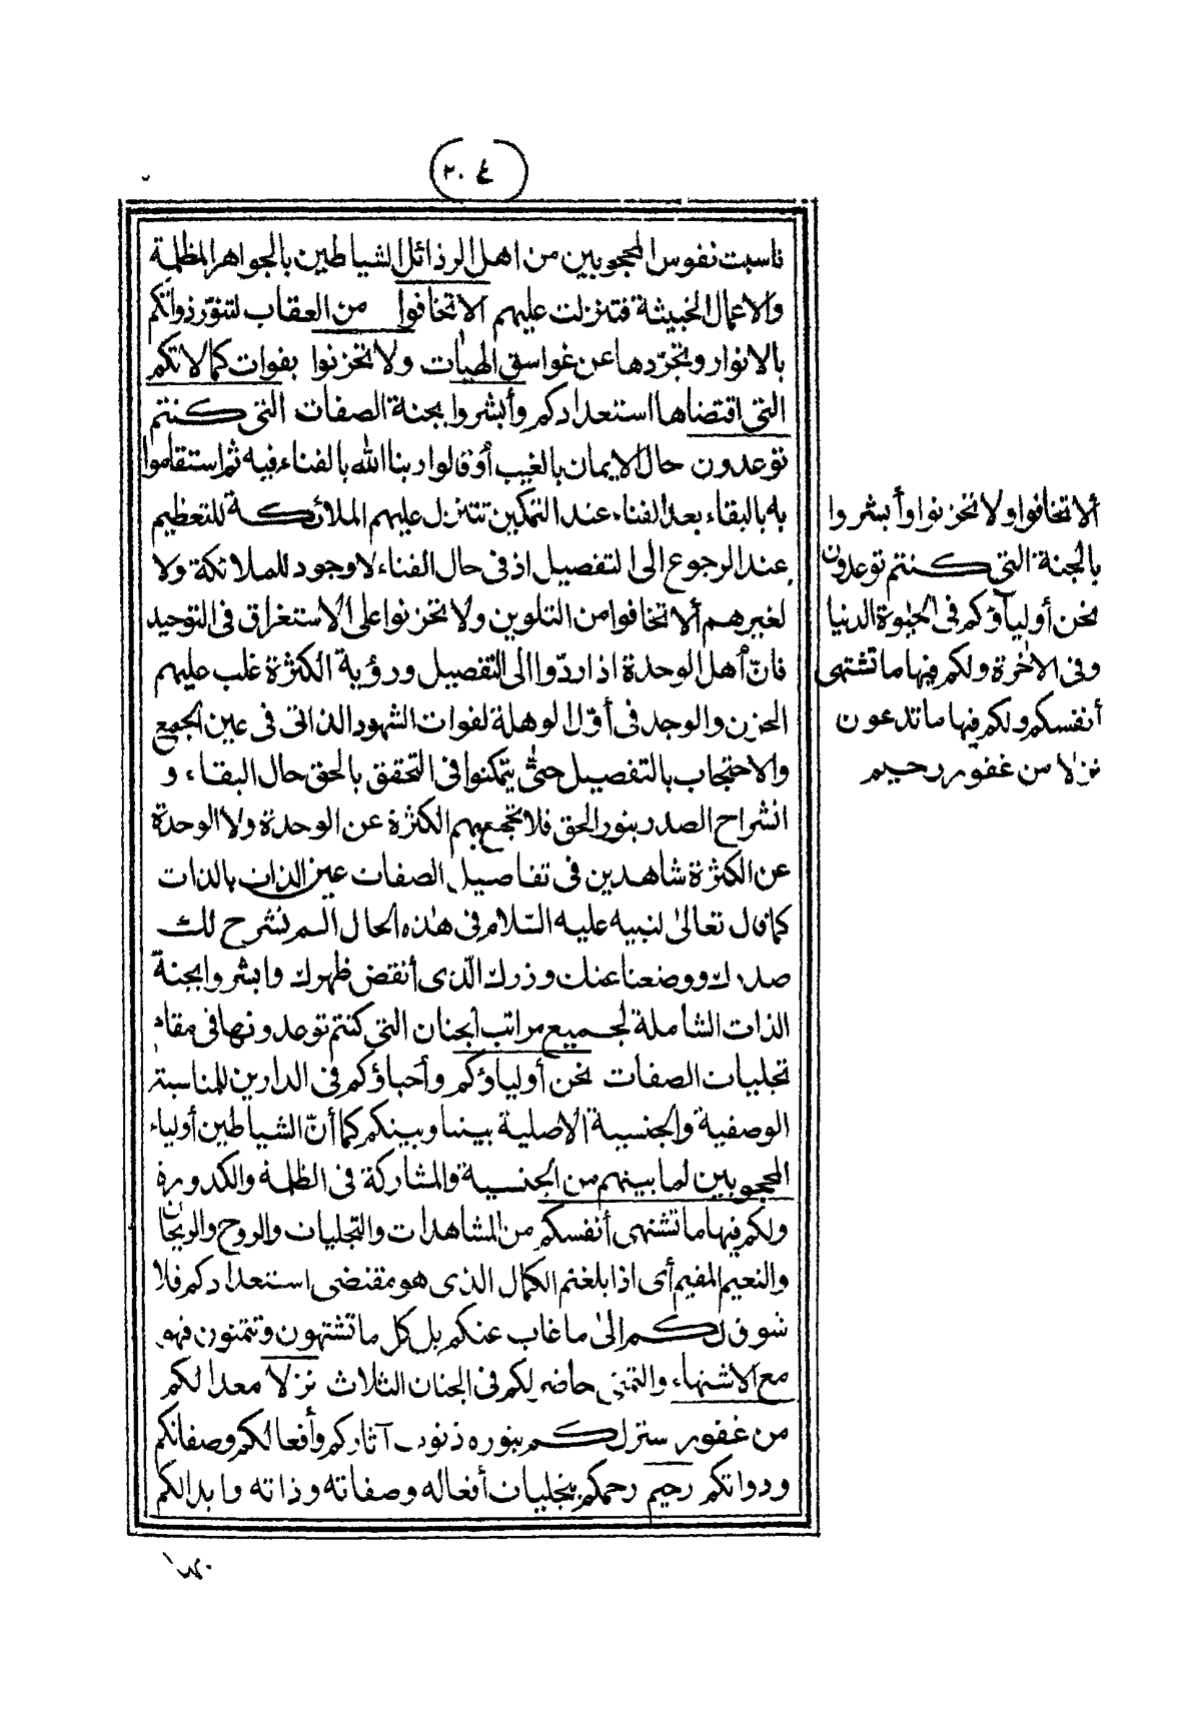 (٢٠٤)
ناسبت نفوس المحجوبين من اهل الرذائل الشياطين بالجواهر المظلمة
والاعمال الخبيثة فتنزلت عليهم ألا تخافوا من العقاب لتنوّر ذواتكم
بالانوار وتجرّدها عن غواسق الهيآت ولا تحزنوا بفوات كمالاتكم
التى اقتضاها استعدادكم وأبشروا بجنة الصفات التى كنتم
توعدون حال الايمان بالغيب أو قالوا ربنا الله بالفناء فيه ثم استقاموا
به بالبقاء بعد الفناء عند التمكين تتنزل عليهم الملائكة للتعظيم
عند الرجوع الى التفصيل اذ فى حال الفناء لا وجود للملائكة ولا
لغيرهم ألا تخافوا من التلوين ولا تحزنوا على الاستغراق فى التوحيد
فانّ أهل الوحدة اذا ردّوا الى التفصيل ورؤية الكثرة غلب عليهم
الحزن والوجد فى أوّل الوهلة لفوات الشهود الذاتى فى عين الجمع
والاحتجاب بالتفصيل حتى يتمكنوا فى التحقق بالحق حال البقاء و
انشراح الصدر بنور الحق فلا تحجبهم الكثرة عن الوحدة ولا الوحدة
عن الكثرة شاهدين فى تفاصيل الصفات عين الذات بالذات
كما قال تعالى لنبيه عليه السّلام فى هذه الحال ألم نشرح لك
صدرك ووضعنا عنك وزرك الّذى أنقض ظهرك وابشروا بجنة
الذات الشاملة لجميع مراتب الجنان التى كنتم توعدونها فى مقام
تجليات الصفات نحن أولياؤكم وأحباؤكم فى الدارين للمناسبة
الوصفية والجنسية الاصلية بيننا وبينكم كما أنّ الشياطين أولياء
المحجوبين لما بينهم من الجنسية والمشاركة فى الظلمة والكدورة
ولكم فيها ما تشتهى أنفسكم من المشاهدات والتجليات والروح والريحان
والنعيم المقيم أى اذا بلغتم الكمال الذى هو مقتضى استعدادكم فلا
شوق لكم الى ما غاب عنكم بل كل ما تشتهون وتتمنون فهو
مع الاشتهاء والتمنى حاضر لكم فى الجنان الثلاث نزلا معدا لكم
من غفور ستر لكم بنوره ذنوب آثاركم وأفعالكم وصفاتكم
وذواتكم رحيم رحمكم بتجليات أفعاله وصفاته وذاته وابدالكم
ألا تخافوا ولا تحزنوا وأبشروا
بالجنة التى كنتم توعدون
نحن أولياؤكم فى الحيوة الدنيا
وفى الآخرة ولكم فيها ما تشتهى
أنفسكم ولكم فيها ما تدعون
نزلا من غفور رحيم